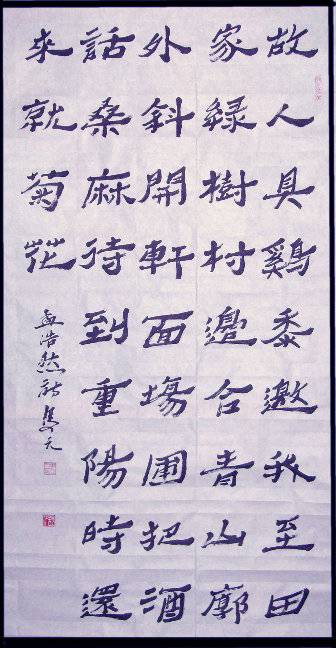 故人具鷄黍邀我至田
家綠樹村邊合青山廓
外斜開軒面場圃把酒
話桑麻待到重陽時還
來就菊花
孟浩然詩